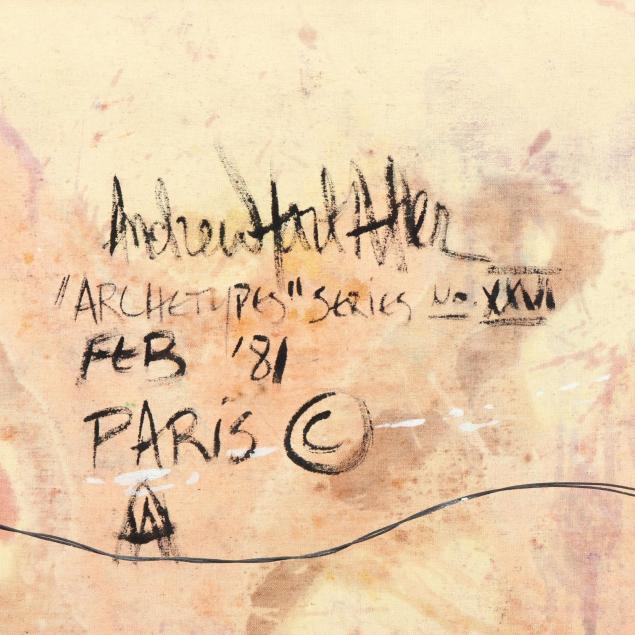 Andrew Hart Adler
"ARCHETYPES" SERIES No. XXVI
FEB '81
PARIS ©
A